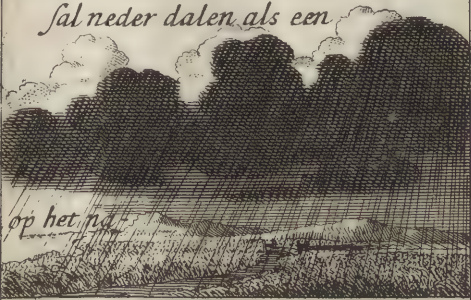 ſal neder dalen als een
op het na